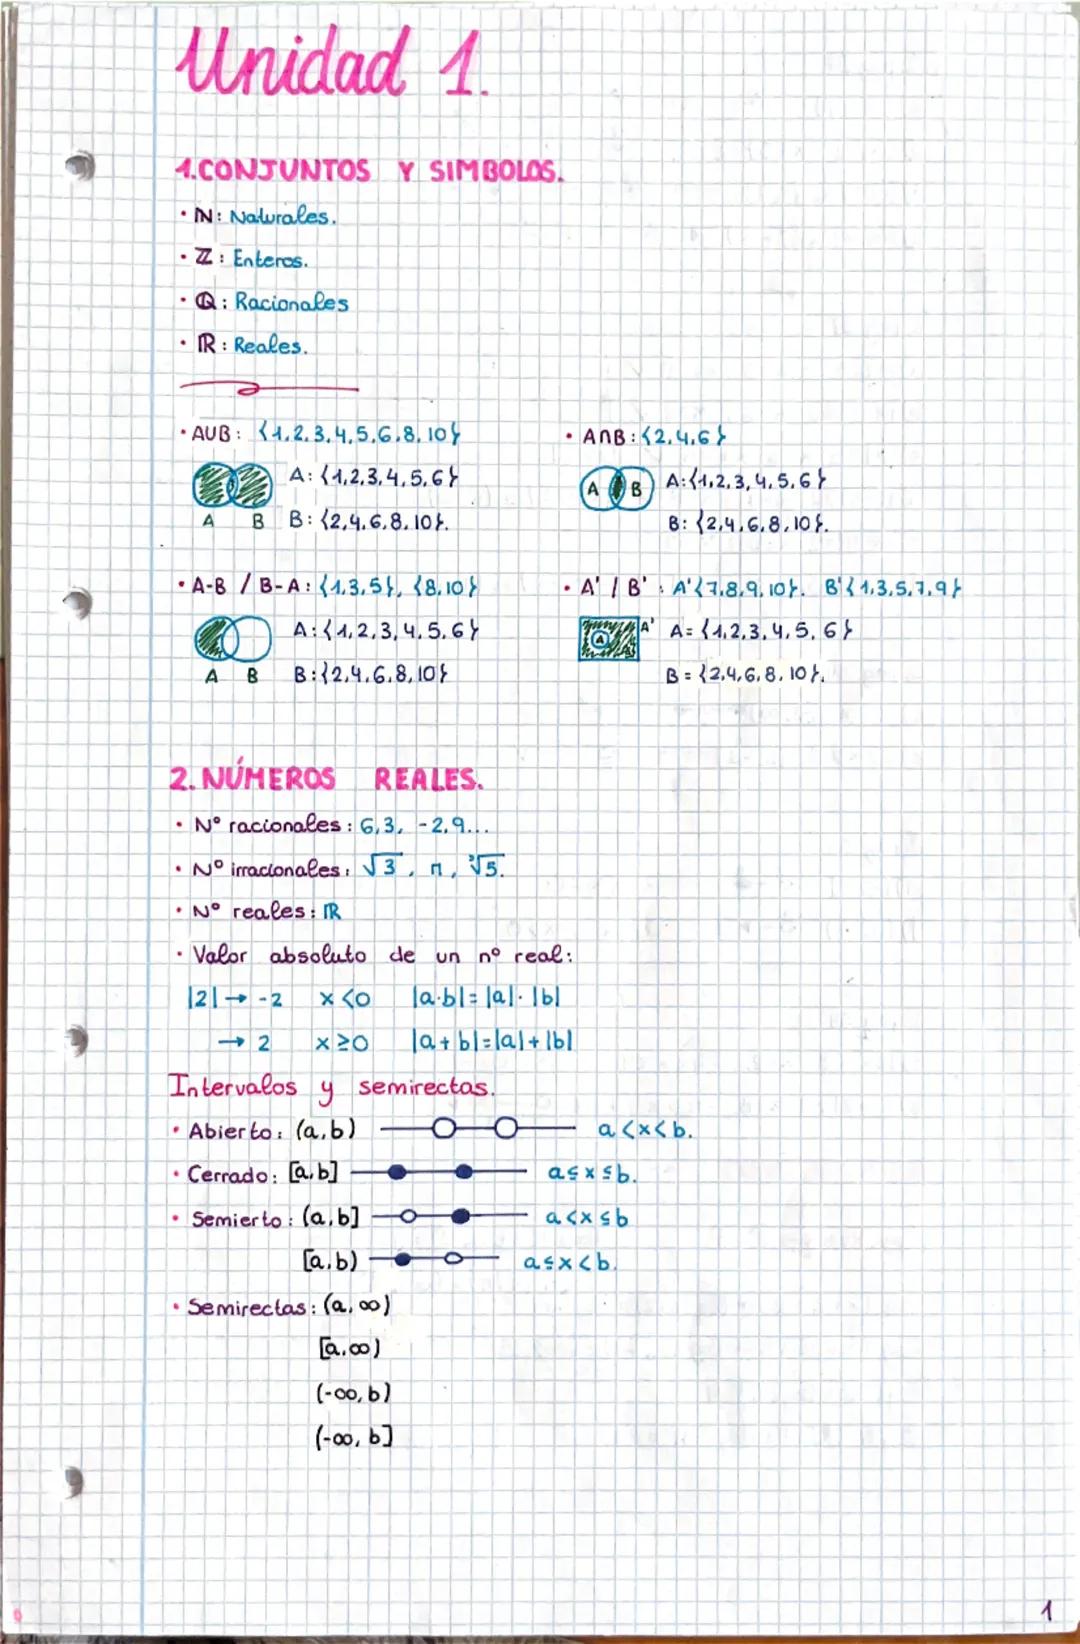 Unidad 1.
1.CONJUNTOS Y SIMBOLOS.
• ℕ: Naturales.
• ℤ: Enteros.
• ℚ: Racionales
• ℝ: Reales.
• A∪B: {1,2,3,4,5,6,8,10}
A: {1,2,3,4,5,6}
A B B: {2,4,6,8,10}.
• A∩B: {2,4,6}
A B A:{1,2,3,4,5,6}
B: {2,4,6,8,10}.
• A-B / B-A: {1,3,5}, {8,10}
A:{1,2,3,4,5,6}
A B B:{2,4,6,8,10}
• A' / B' : A'{7,8,9,10}. B'{1,3,5,7,9}
A A' A= {1,2,3,4,5,6}
B= {2,4,6,8,10}.
2. NÚMEROS REALES.
• Nº racionales: 6,3, -2,9...
• Nº irracionales: √3, π, ³√5.
• Nº reales: ℝ
• Valor absoluto de un nº real:
|2| → -2 x<0 |a·b|=|a|·|b|
→ 2 x≥0 |a+b|=|a|+|b|
Intervalos y semirectas.
• Abierto: (a,b) a<x<b.
• Cerrado: [a,b] a≤x≤b.
• Semierto: (a,b] a<x≤b
[a,b) a≤x<b.
• Semirectas: (a,∞)
[a,∞)
(-∞,b)
(-∞,b]
1